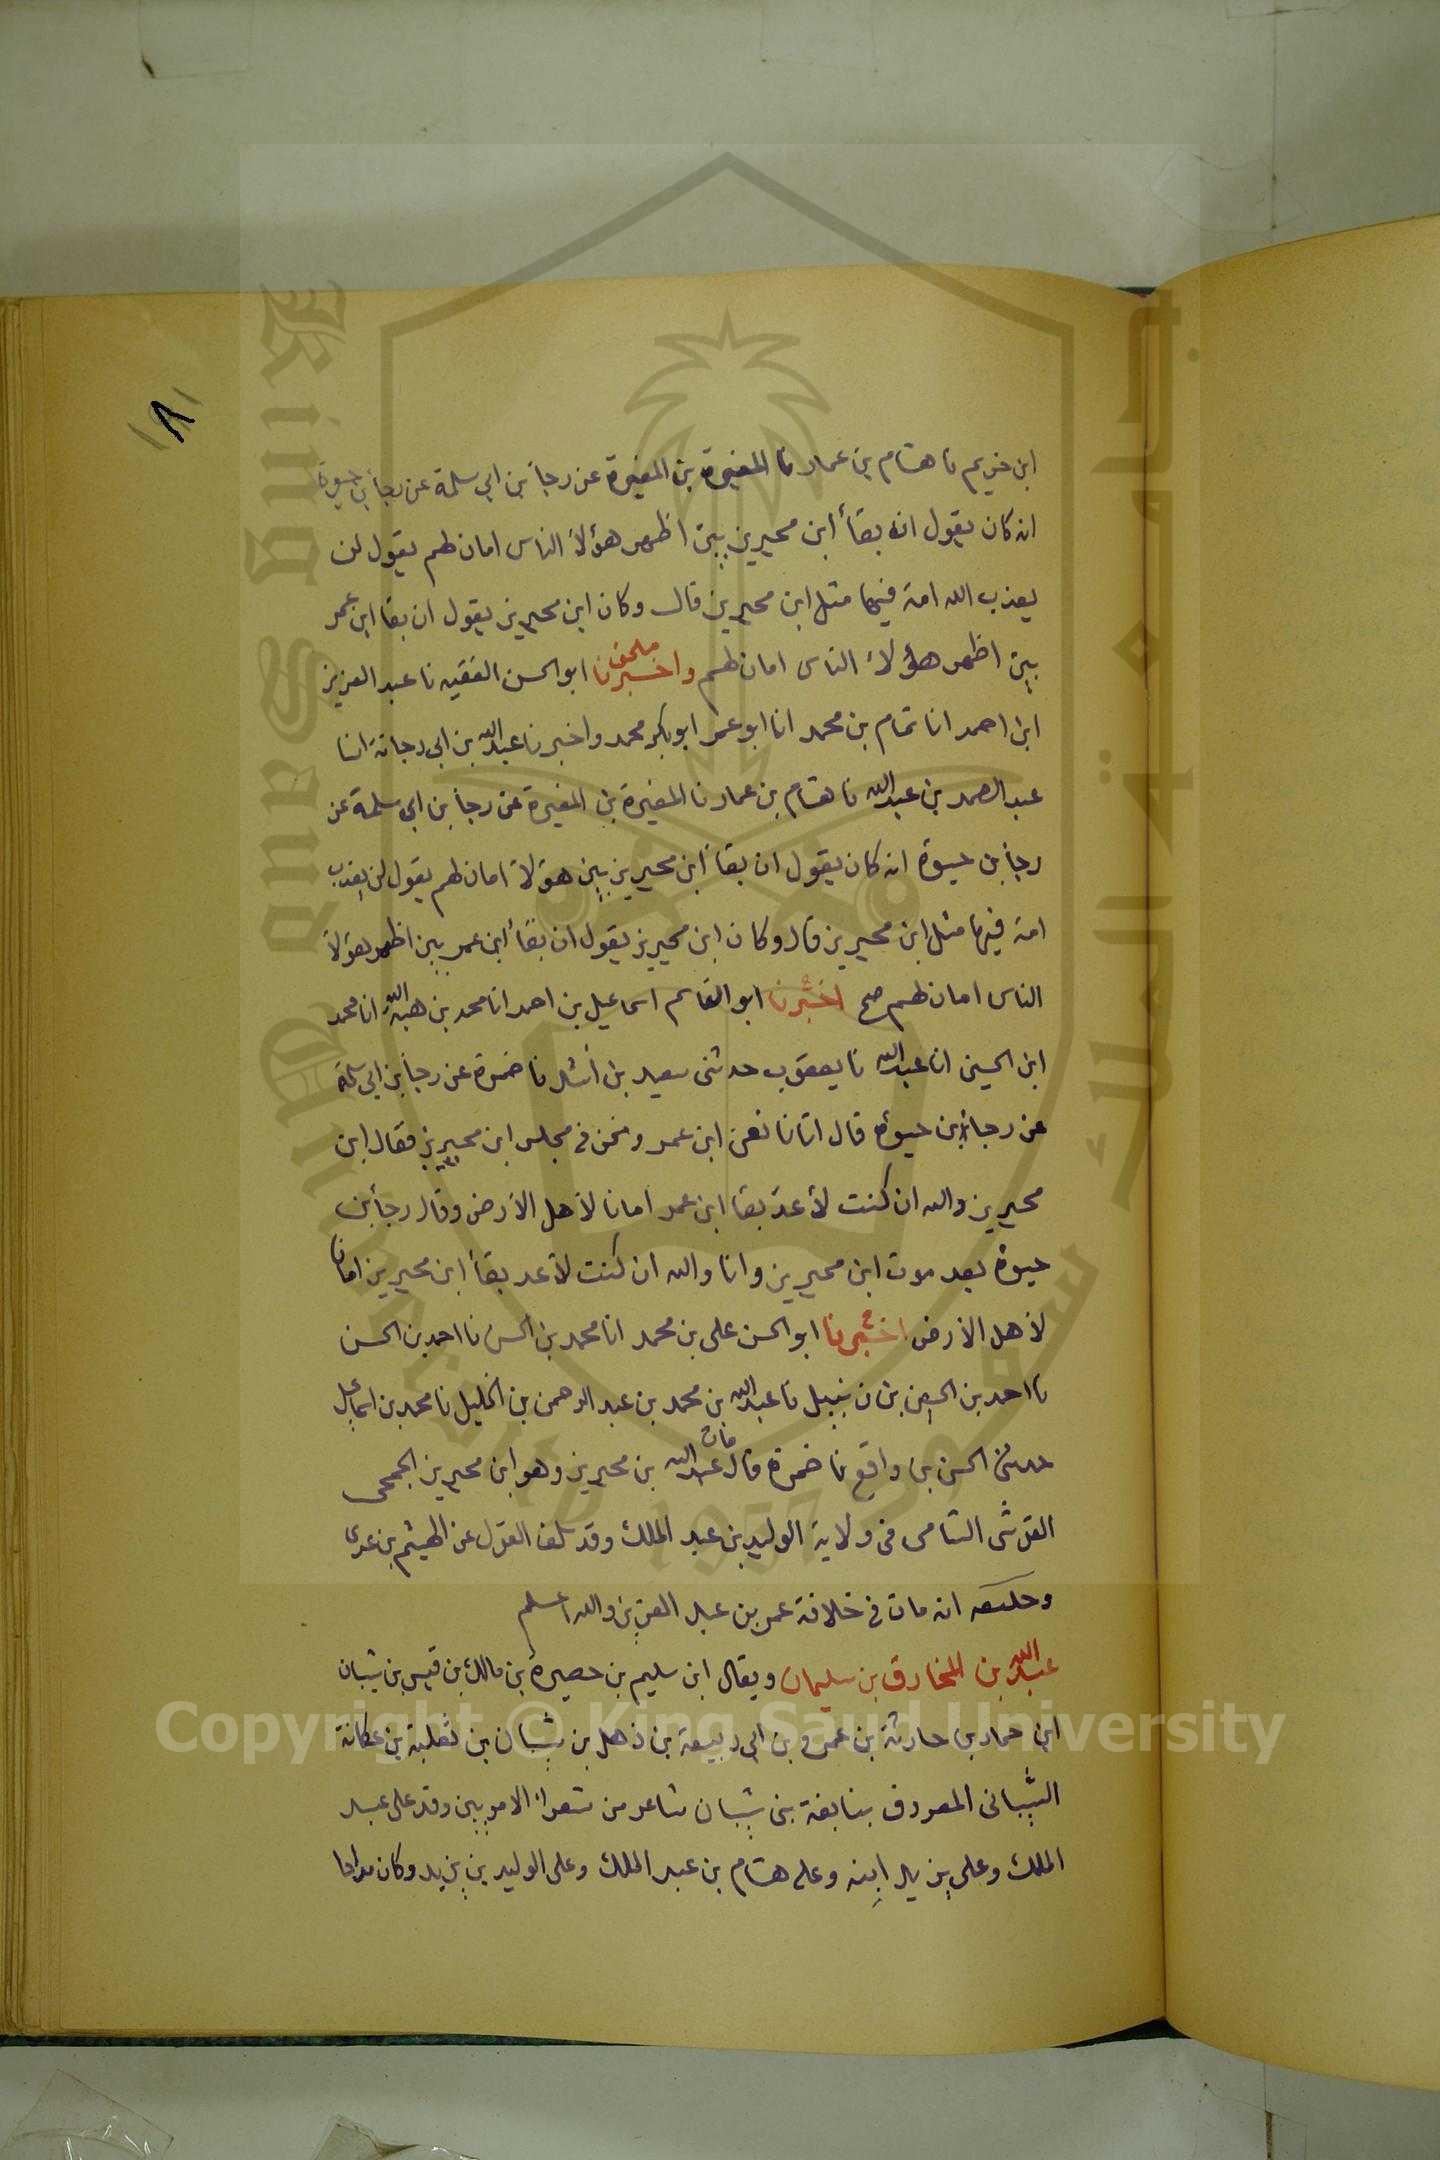 ١٨
ابن خريم نا هشام بن عمار نا المغيرة بن المغيرة عن رجأ بن ابي سلمة عن رجأ بن حيوة
انه كان يقول ان بقأ ابن محيريز بين اظهر هؤلأ الناس امان لهم يقول لن
يعذب الله امة فيها مثل ابن محيريز قال وكان ابن محيريز يقول ان بقا ابن عمر
بين اظهر هؤلأ الناس امان لهم واخبرنا ملحق ابو الحسن الفقيه نا عبد العزيز
ابن احمد انا تمام بن محمد انا ابو عمر ابو بكر محمد واخبرنا عبد الله بن ابي دجانة انا
عبد الصمد بن عبد الله نا هشام بن عمار نا المغيرة بن المغيرة عن رجأ بن ابي سلمة عن
رجأ بن حيوة انه كان يقول ان بقأ ابن محيريز بين هؤلأ امان لهم يقول لن يعذب
امة فيها مثل ابن محيريز قال وكان ابن محيريز يقول ان بقأ ابن عمر بين اظهر هؤلأ
الناس امان لهم صح اخبرنا ابو القاسم اسماعيل بن احمد انا محمد بن هبة الله انا محمد
ابن الحسين انا عبد الله نا يعقوب حدثنى سعيد بن أسد نا ضمرة عن رجأ بن ابي سلمة
عن رجاء بن حيوة قال اتانا نعى ابن عمر ونحن في مجلس ابن محيريز فقال ابن
محيريز والله ان كنت لأعد بقا ابن عمر امانا لأهل الأرض وقال رجأ بن
حيوة بعد موت ابن محيريز وانا والله ان كنت لأعد بقأ ابن محيريز امانا
لأهل الأرض اخبرنا ابو الحسن على بن محمد انا محمد بن الحسن نا احمد بن الحسن
نا احمد بن الحسين بن زنبيل نا عبد الله بن محمد بن عبد الرحمن بن الخليل نا محمد بن اسماعيل
حدثنى الحسن بن واقع نا ضمرة قال مات عبد الله بن محيريز وهو ابن محيريز الجمحى
القرشى الشامى فى ولاية الوليد بن عبد الملك وقد سلف القول عن الهيثم بن عدى
انه مات في خلافة عمر بن عبد العزيز والله اعلم
عبد الله بن المخارق بن سليمان ويقال ابن سليم بن حصيرة بن مالك بن قيس بن شيبان
ابن حماد بن حارثة بن عمرو بن ابي ربيعة بن ذهل بن شيبان بن ثعلبة بن عكانة
الشيبانى المعروف بنابغة بنى شيبان شاعر من شعرا الامويين وفد على عبد
الملك وعلى يزيد ابنه وعلى هشام بن عبد الملك وعلى الوليد بن يزيد وكان مداحا
Copyright © King Saud University
King Saud University
جامعة الملك سعود
1957